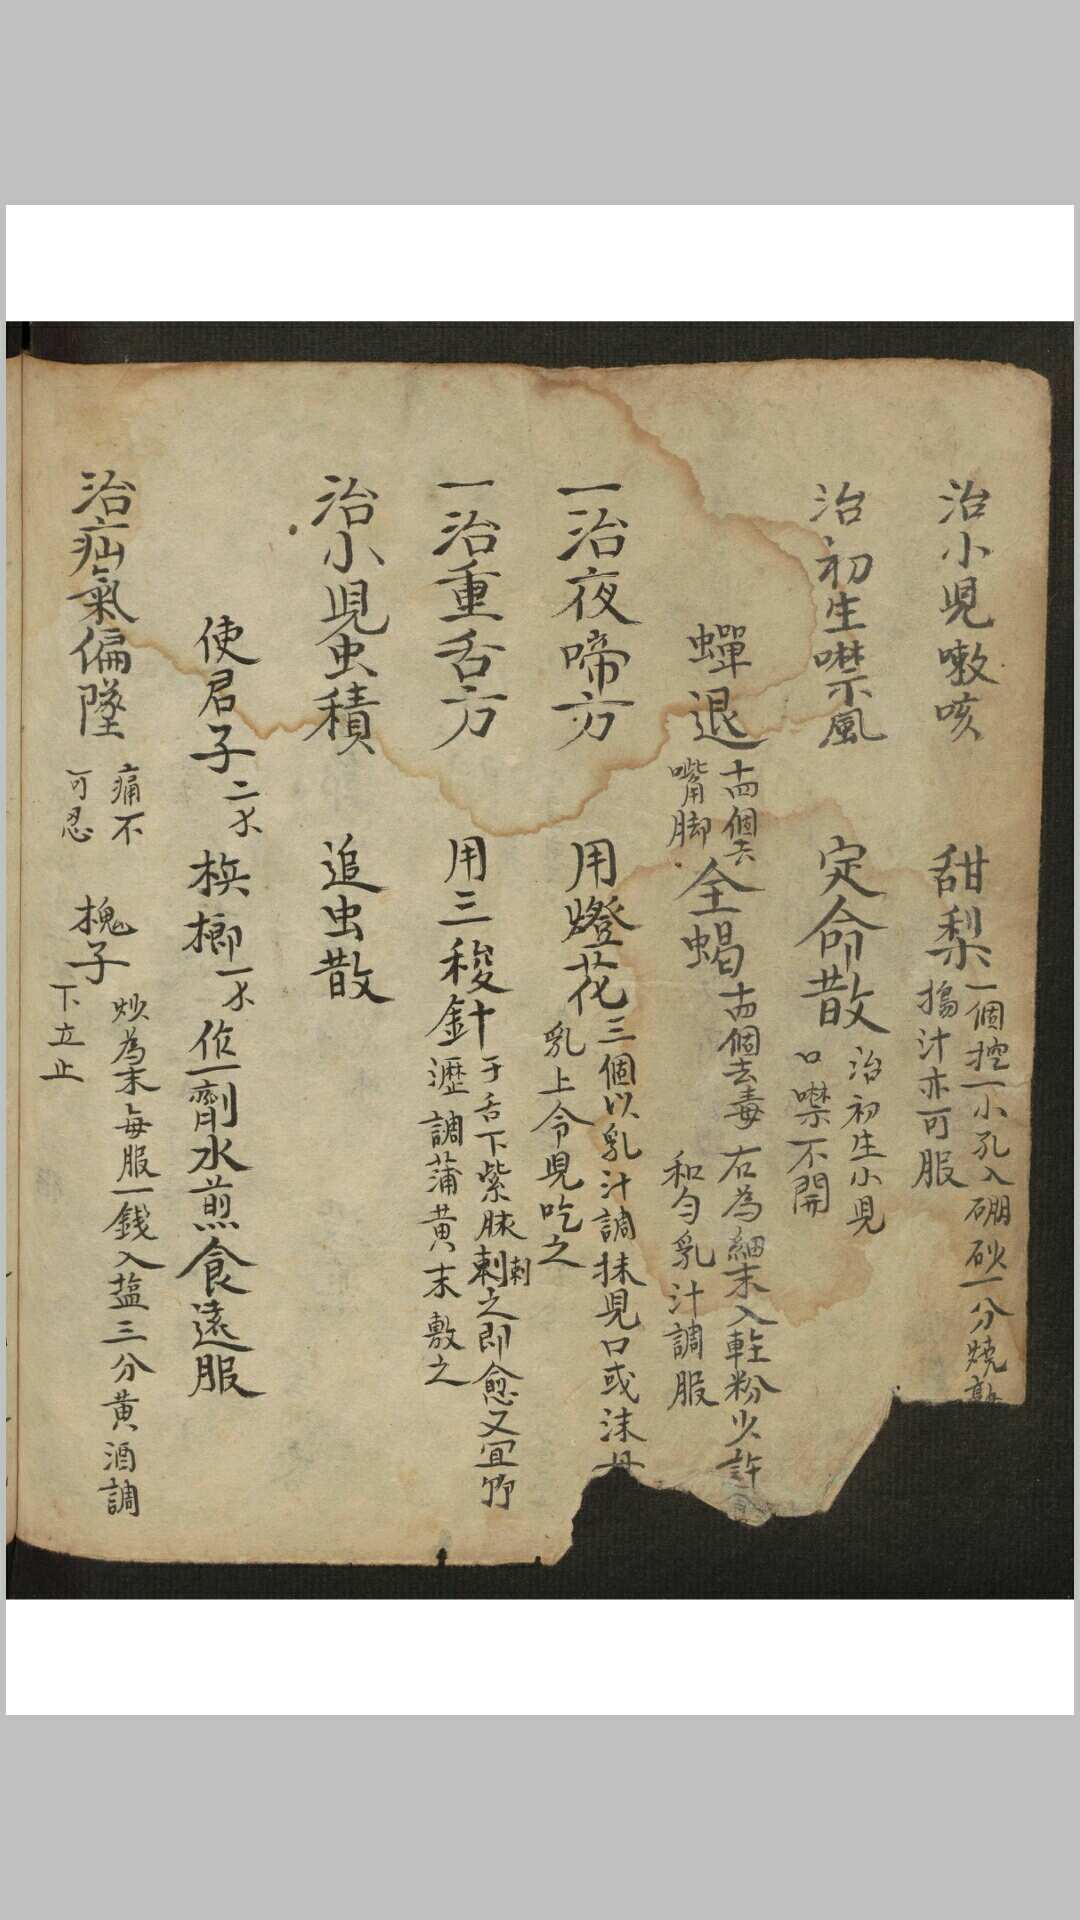 治小児嗽咳
甜梨一個挖一小孔入硼砂一分燒熟
搗汁亦可服
治初生噤風
定命散治初生小児
口噤不開
蟬退十四個去
嘴脚
全蝎十四個去毒
右為細末入輕粉少許
和勻乳汁調服
一治夜啼方
用燈花三個以乳汁調抹児口或沫母
乳上令児吃之
一治重舌方
用三稜針于舌下紫脉刺之即愈又宜竹
刺
瀝調蒲黄末敷之
治小児虫積
追虫散
使君子二水
梹榔一水
作一劑水煎食遠服
治疝氣偏墜痛不
可忍
槐子炒為末每服一錢入塩三分黄酒調
下立止